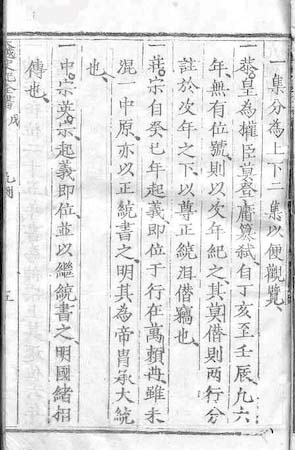 一集分為上下二集以便觀覽
一恭皇為權臣莫登庸簒弑自丁亥至壬辰凡六
年無有位號則以次年紀之其莫僭則兩行分
註於次年之下以尊正統沮僭竊也
一莊宗自癸巳年起義即位于行在萬賴冊雖未
混一中原亦以正統書之明其為帝冑承大統
也
一中宗英宗起義即位並以繼統書之明國緒相
傳也